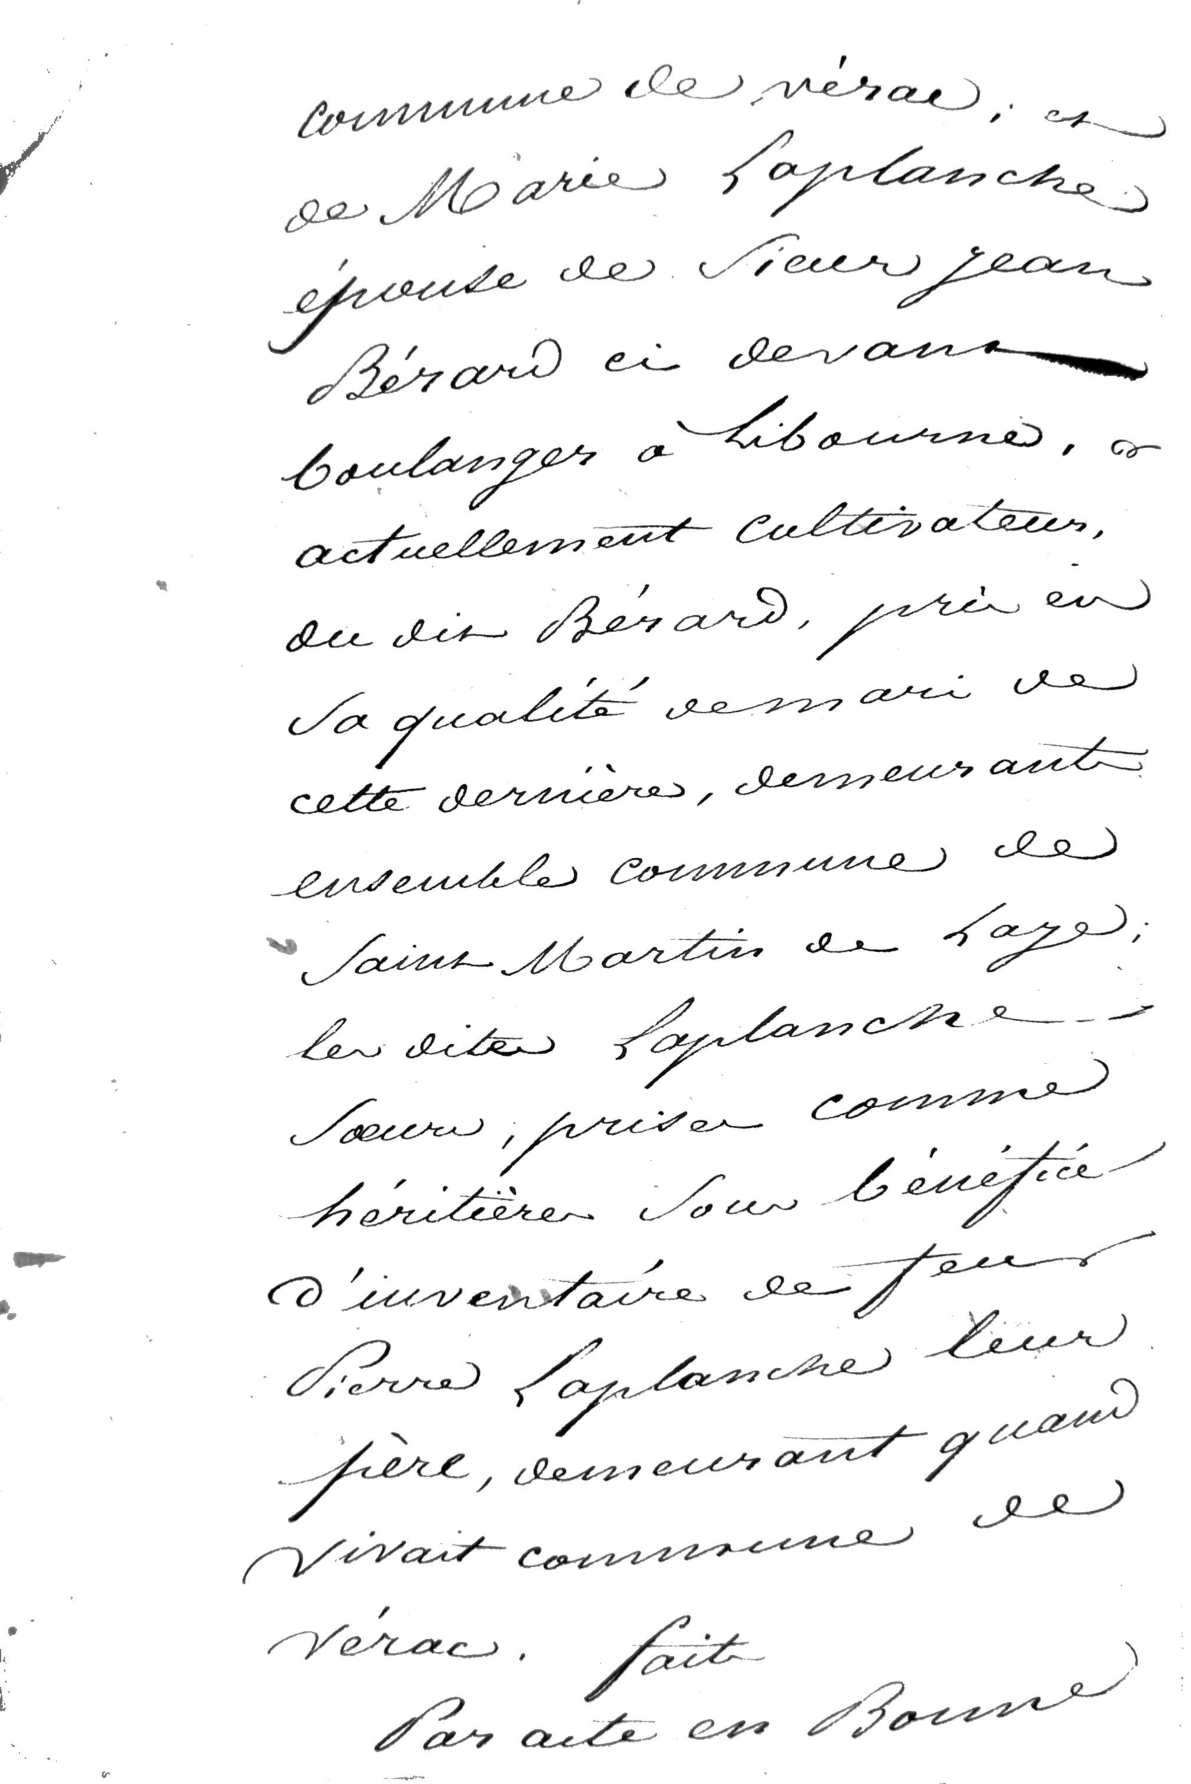 commune de vérac ; et
de Marie Laplanche
épouse de Sieur jean
Bérard ci devant
boulanger à Libourne, et
actuellement cultivateur,
du dit Bérard, pris en
Sa qualité de mari de
cette dernière, demeurant
ensemble commune de
Saint Martin de Laye ;
les dites Laplanche
Sœurs, prises comme
héritières Sous bénéfice
d'inventaire de feu
Pierre Laplanche leur
père, demeurant quand
vivait commune de
vérac. fait
Par acte en Bonne